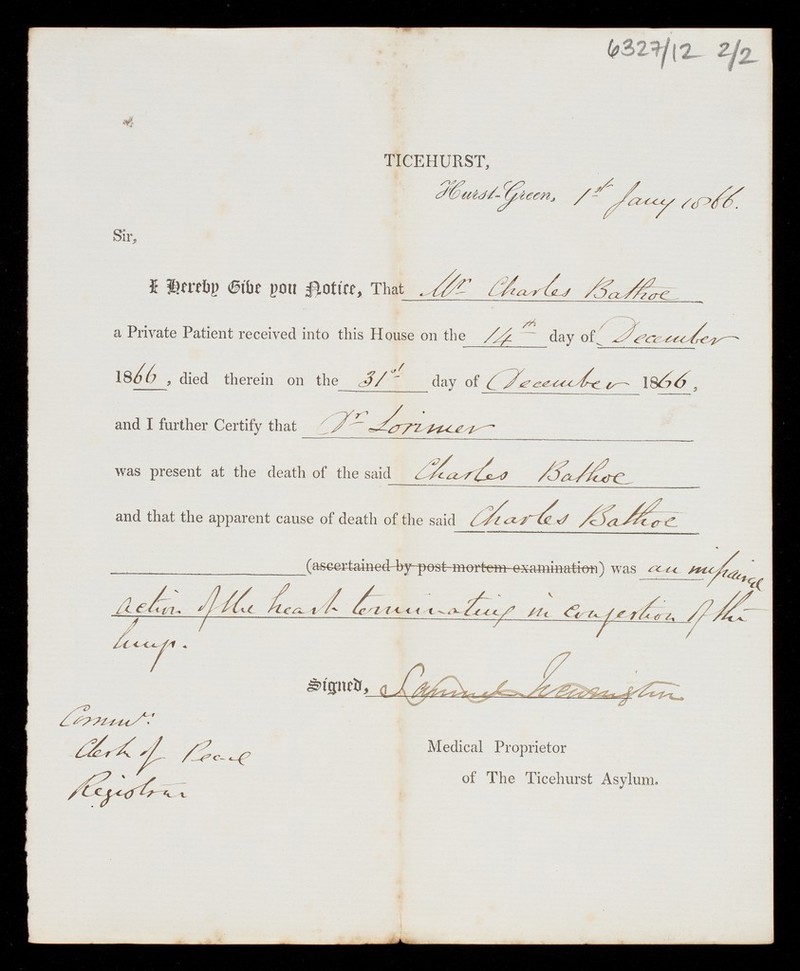 6327/12 2/2
TICEHURST,
Hurst-Green, 1st Jany 1866.
Sir,
I Hereby Give you Notice, That Mr Charles Bathoe
a Private Patient received into this House on the 14th day of December
1866, died therein on the 31st day of December 1866,
and I further Certify that Dr Lorimer
was present at the death of the said Charles Bathoe
and that the apparent cause of death of the said Charles Bathoe
(ascertained by post mortem examination) was an impaired
action of the heart terminating in congestion of the
lungs.
Signed, Samuel Newington
Commrs:
Clerk of Peace
Registrar
Medical Proprietor
of The Ticehurst Asylum.